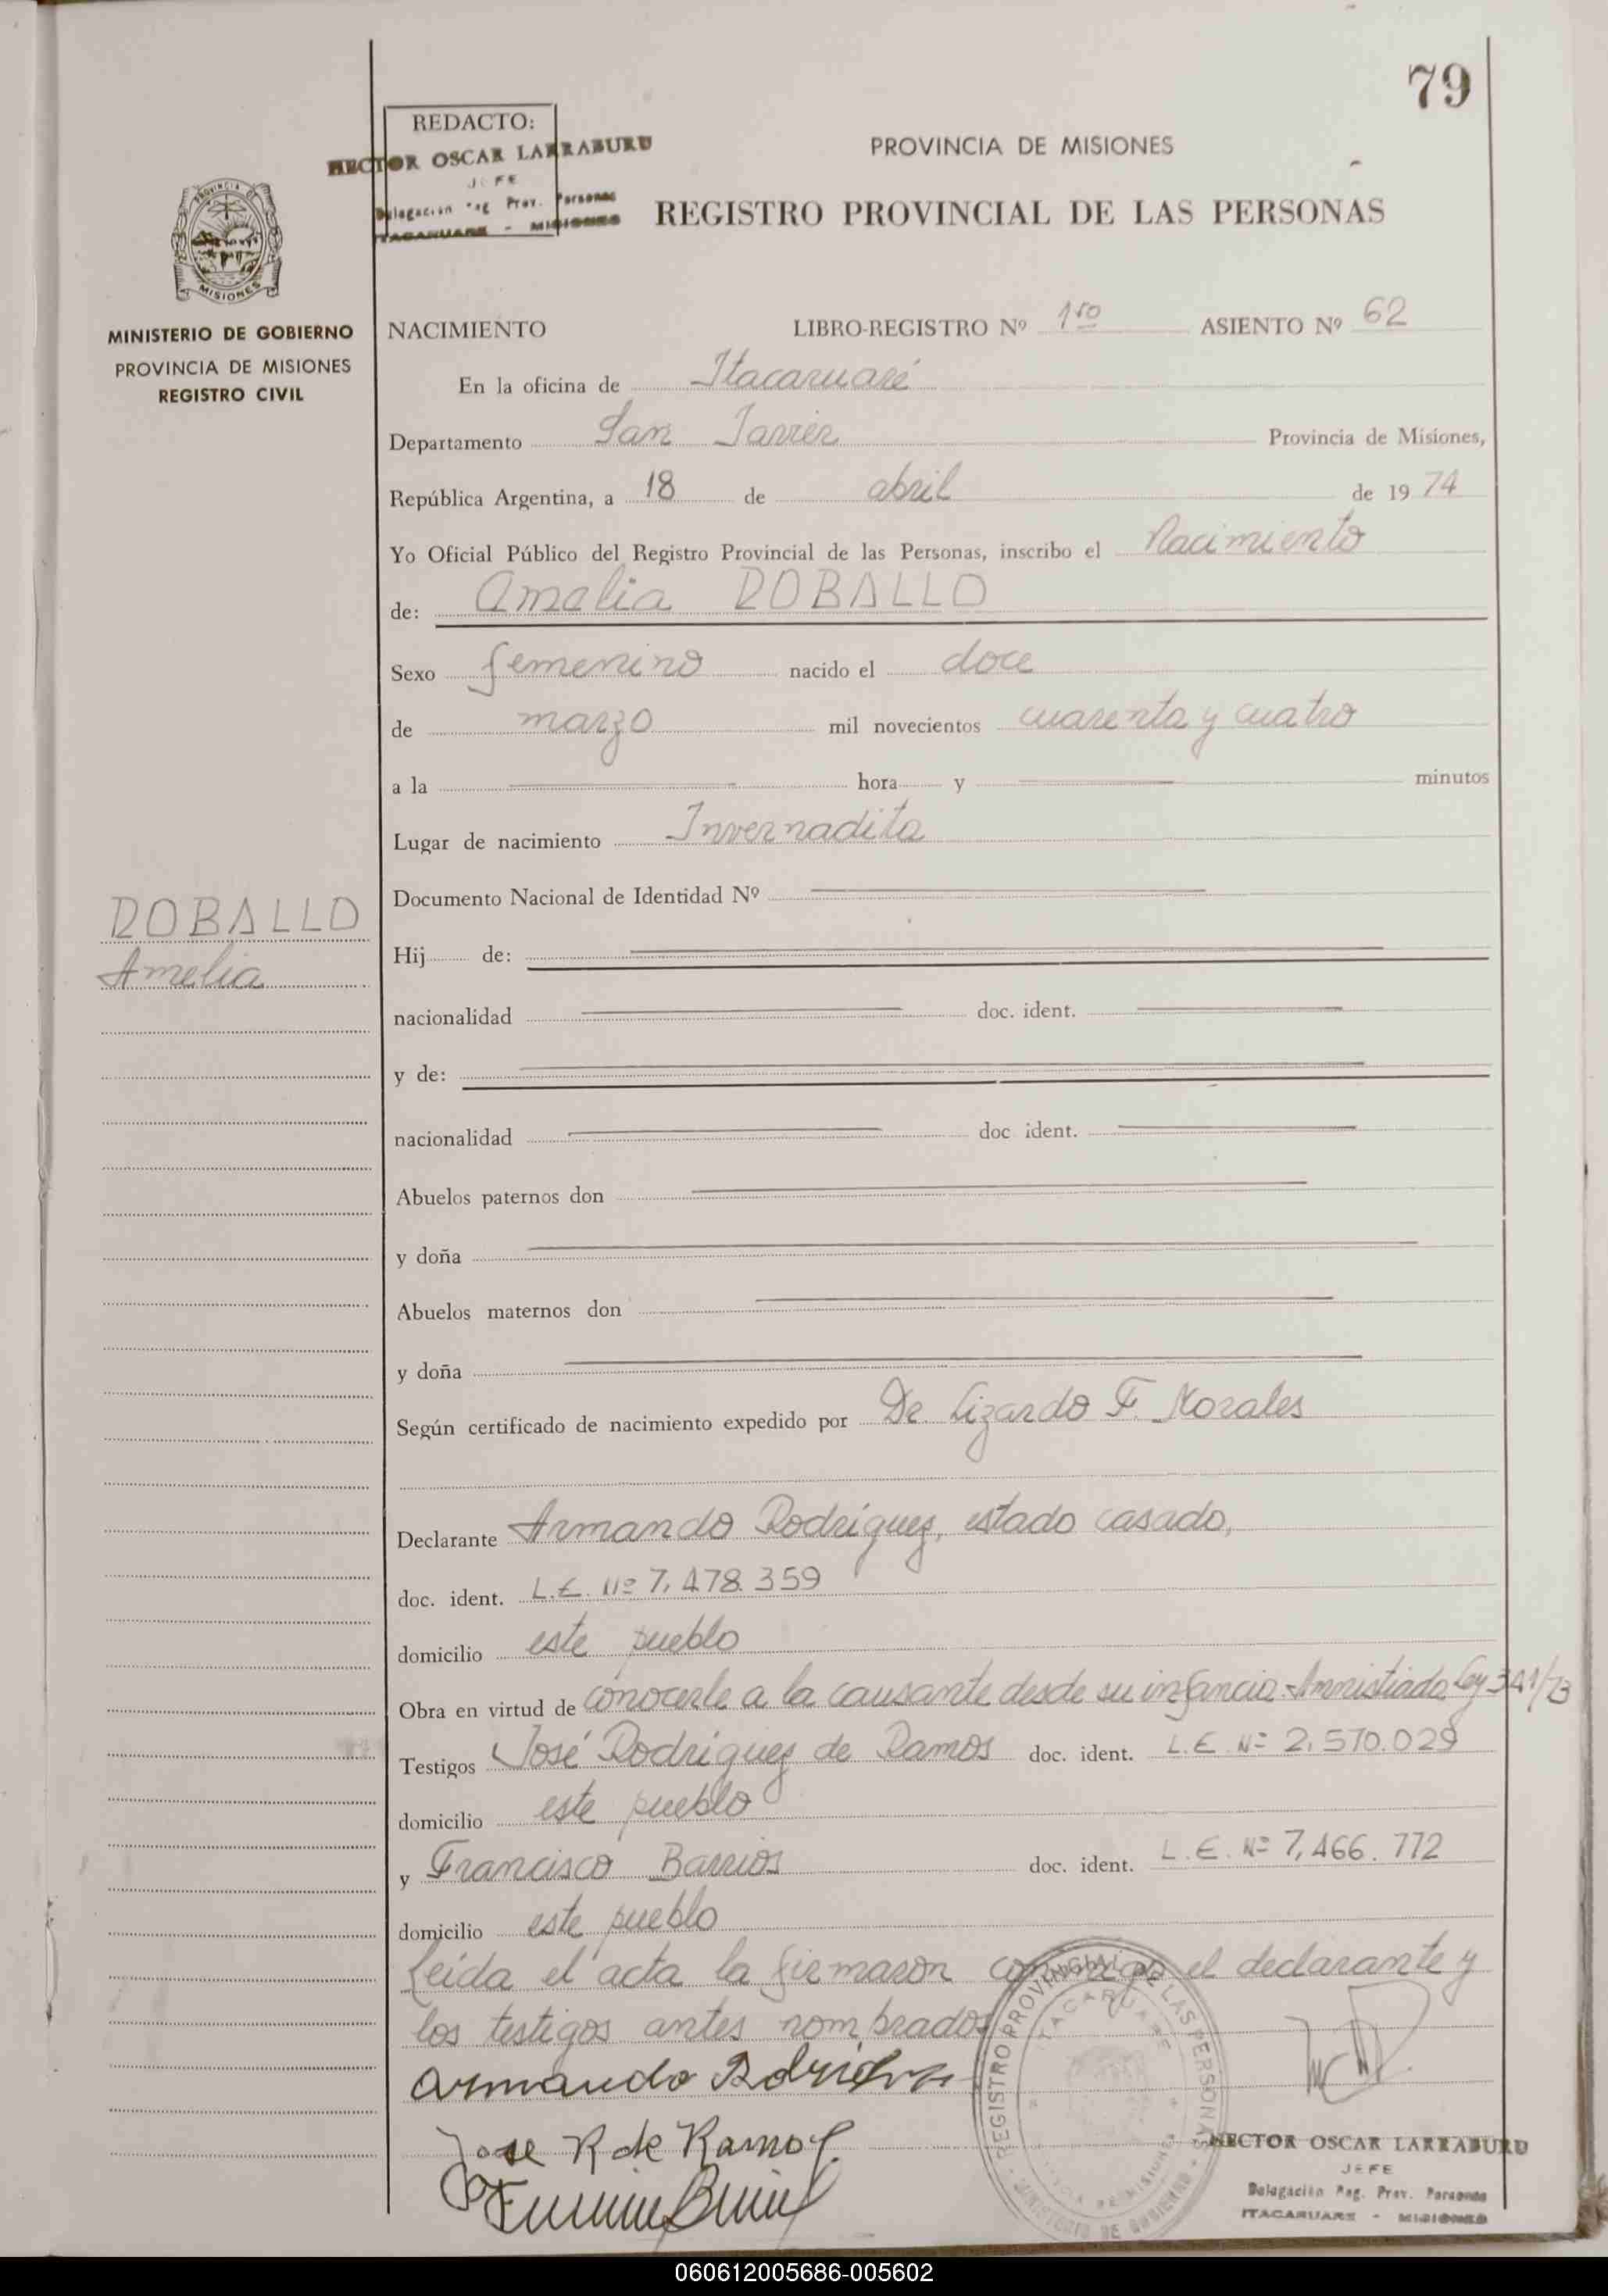 79
REDACTO:
HECTOR OSCAR LARRABURU
JEFE
Delegación Reg. Prov. Personas
ITACARUARE - MISIONES
PROVINCIA DE MISIONES
REGISTRO PROVINCIAL DE LAS PERSONAS
PROVINCIA DE
MISIONES
MINISTERIO DE GOBIERNO
PROVINCIA DE MISIONES
REGISTRO CIVIL
NACIMIENTO LIBRO-REGISTRO Nº 1ro ASIENTO Nº 62
En la oficina de Itacaruaré
Departamento San Javier Provincia de Misiones,
República Argentina, a 18 de abril de 1974
Yo Oficial Público del Registro Provincial de las Personas, inscribo el Nacimiento
de: Amelia ROBALLO
Sexo femenino nacido el doce
de marzo mil novecientos cuarenta y cuatro
a la hora y minutos
Lugar de nacimiento Invernadita
Documento Nacional de Identidad Nº
ROBALLO
Amelia
Hij de:
nacionalidad doc. ident.
y de:
nacionalidad doc ident.
Abuelos paternos don
y doña
Abuelos maternos don
y doña
Según certificado de nacimiento expedido por Dr. Lizardo F. Morales
Declarante Armando Rodríguez, estado casado,
doc. ident. L.E. Nº 7.478.359
domicilio este pueblo
Obra en virtud de conocerle a la causante desde su infancia. Amnistiada Ley 341/73
Testigos José Rodríguez de Ramos doc. ident. L.E. Nº 2.570.029
domicilio este pueblo
y Francisco Barrios doc. ident. L.E. Nº 7,466.772
domicilio este pueblo
Leída el acta la firmaron conmigo el declarante y
los testigos antes nombrados
Armando
Jose R de Ramos
REGISTRO PROVINCIAL DE LAS PERSONAS
ITACARUARE
MINISTERIO DE GOBIERNO
HECTOR OSCAR LARRABURU
JEFE
Delegación Reg. Prov. Personas
ITACARUARE - MISIONES
060612005686-005602